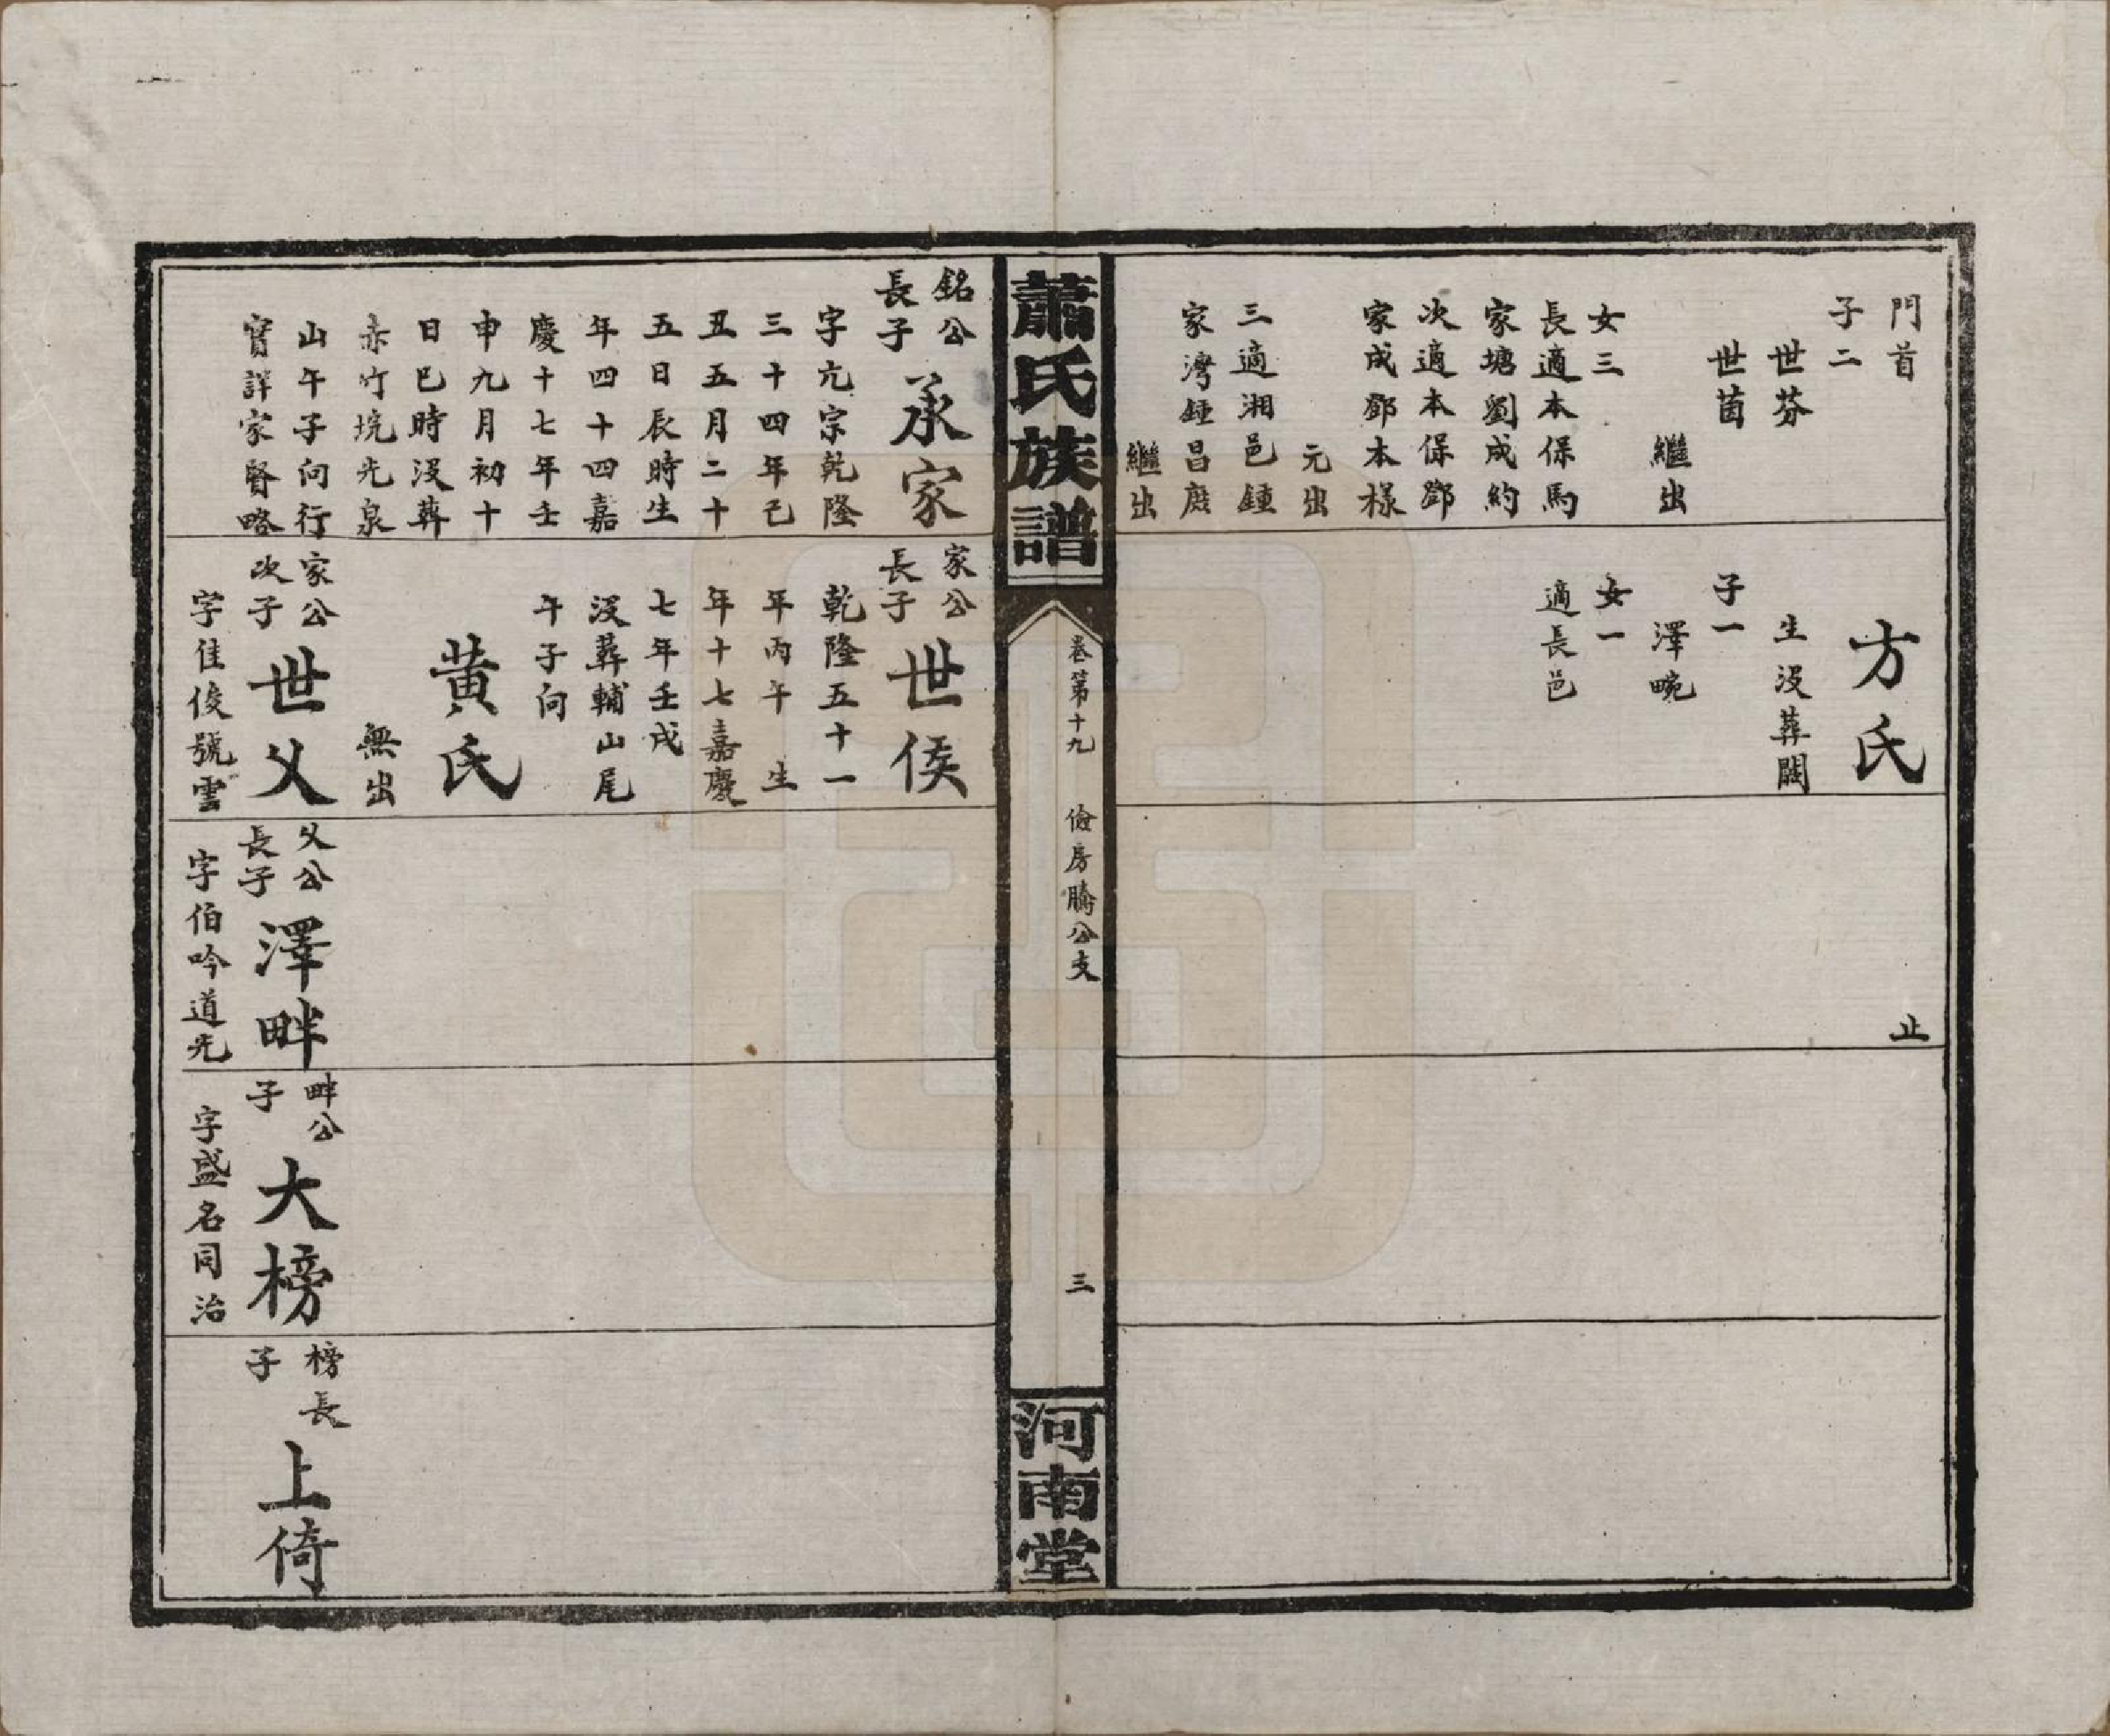 門首
子二
世芬
世茵
繼出
女三
長適本保馬
家塘劉成約
次適本保鄧
家成鄧本樣
元出
三適湘邑鍾
家灣鍾昌庶
繼出
方氏
生沒葬闕
子一
澤畹
女一
適長邑
止
蕭氏族譜
卷第十九
儉房騰公支
三
河南堂
銘公
長子
承家
字亢宗乾隆
三十四年己
丑五月二十
五日辰時生
年四十四嘉
慶十七年壬
申九月初十
日巳時沒葬
赤竹坑光泉
山午子向行
實詳家賢略
家公
長子
世侯
乾隆五十一
年丙午 生
年十七嘉慶
七年壬戌
沒葬輔山尾
午子向
黃氏
無出
家公
次子
世乂
字佳俊號雲
乂公
長子
澤畔
字伯吟道光
畔公
子
大榜
字盛名同治
榜長
子
上倚